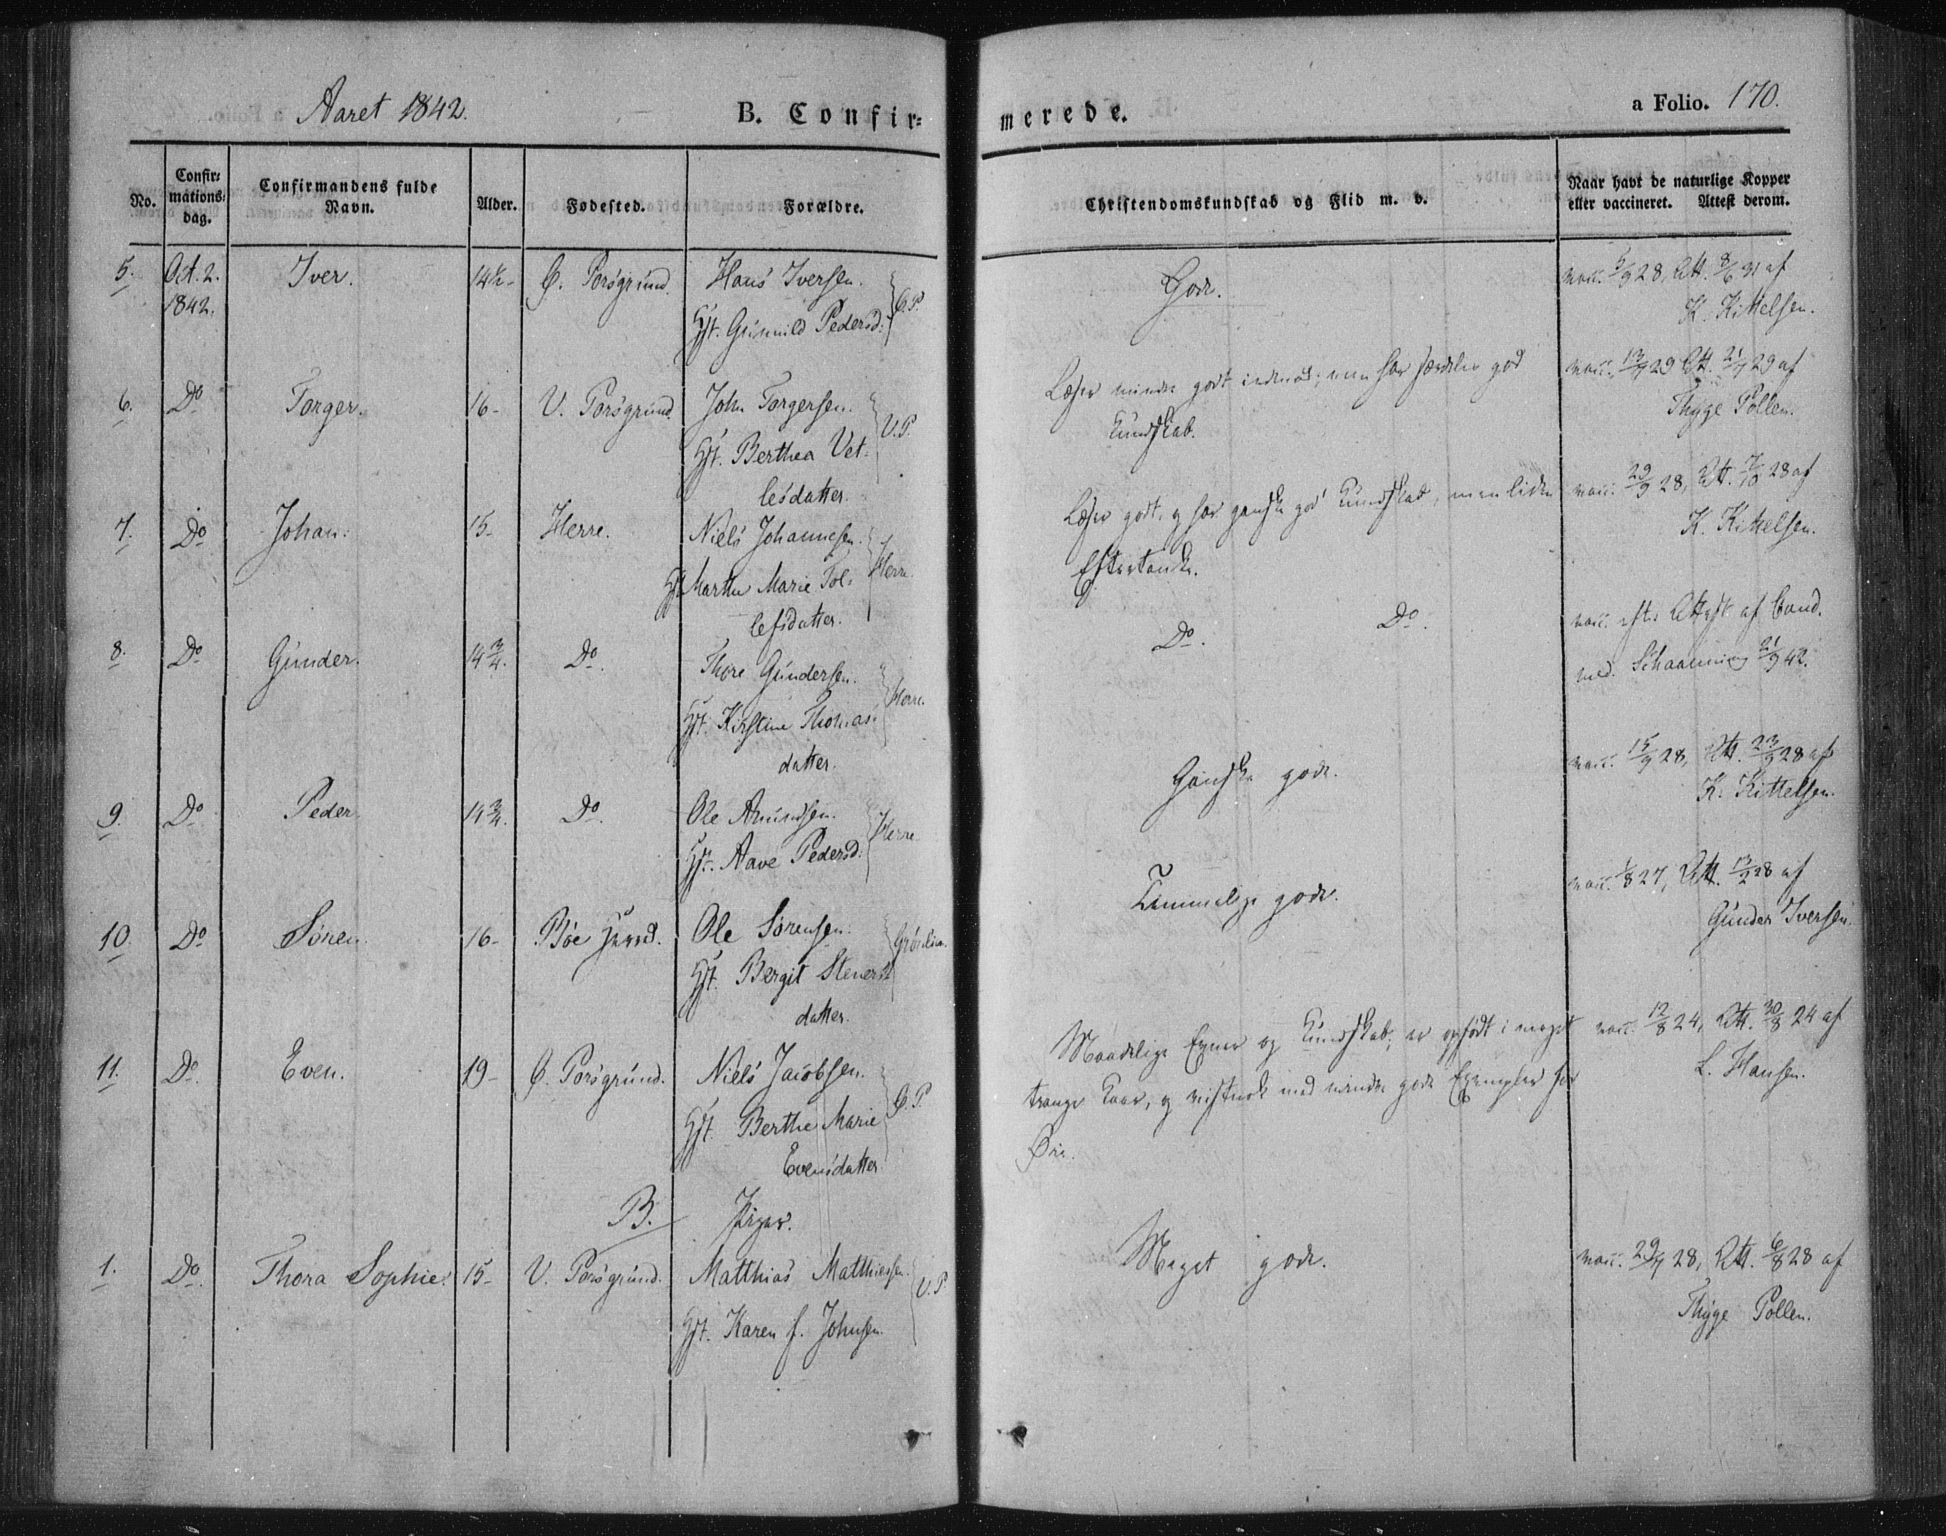 Aaret 1842. B. Confir= merede. a Folio. 170.
No. Confir= mations= dag. Confirmandens fulde Navn. Alder. Fødested. Forældre. Christendomskundskab og Flid m. v. Naar havt de naturlige Kopper eller vaccineret. Attest derom.
5. Oct. 2. Iver. 14½- Ø. Porsgrund. Hans Iversen. Ø.P. God. vacc. 5/9 28, Att. 8/6 31 af
1842. Hst. Gunnild Pedersd: K. Kittelsen.
6. Do Torger. 16- V. Porsgrund. John Torgersen. V.P. Læser mindre godt indenad; men har særdeles god vacc. 13/7 29 Att. 21/7 29 af
Hst. Berthea Vet= Kundskab. Thyge Pollen.
lesdatter.
7. Do Johan. 15- Herre. Niels Johannesen. Herre. Læser godt, og har ganske god Kundskab, men liden vacc. 29/9 28, Att. 7/10 28 af
Hst. Marthe Marie Tol= Eftertanke. K. Kittelsen.
lefsdatter.
8. Do Gunder. 14¾. Do. Thore Gundersen. Herre. Do. Do. vacc. efter Attest af Cand.
Hst. Kirstine Thomas= med. Schaanning 21/9 42.
datter.
9. Do. Peder. 14¾. Do. Ole Amundsen. Herre Ganske god. vacc. 15/9 28, Att. 23/9 28 af
Hst. Aave Pedersd. K. Kittelsen.
10. Do Sören. 16- Böe Ole Sörensen. Temmelig god. vacc. 1/8 27, Att. 13/2 28 af
Hst. Bergit Steners= Gunder Iversen.
datter.
11. Do. Even. 19- Ø. Porsgrund. Niels Jacobsen. Ø.P. Maadelige Evner og Kundskab; er opfødt i meget vacc. 12/8 24, Att. 30/8 24 af
Hst. Berthe Marie trange Kaar, og vistnok med mindre gode Exempler for L. Hansen.
Evensdatter Øie.
B. Piger.
1. Do. Thora Sophie. 15- V. Porsgrund. Matthias Matthiesen. V.P. Meget god. vacc. 29/7 28, Att. 6/8 28 af
Hst. Karen f. Johnsen. Thyge Pollen.